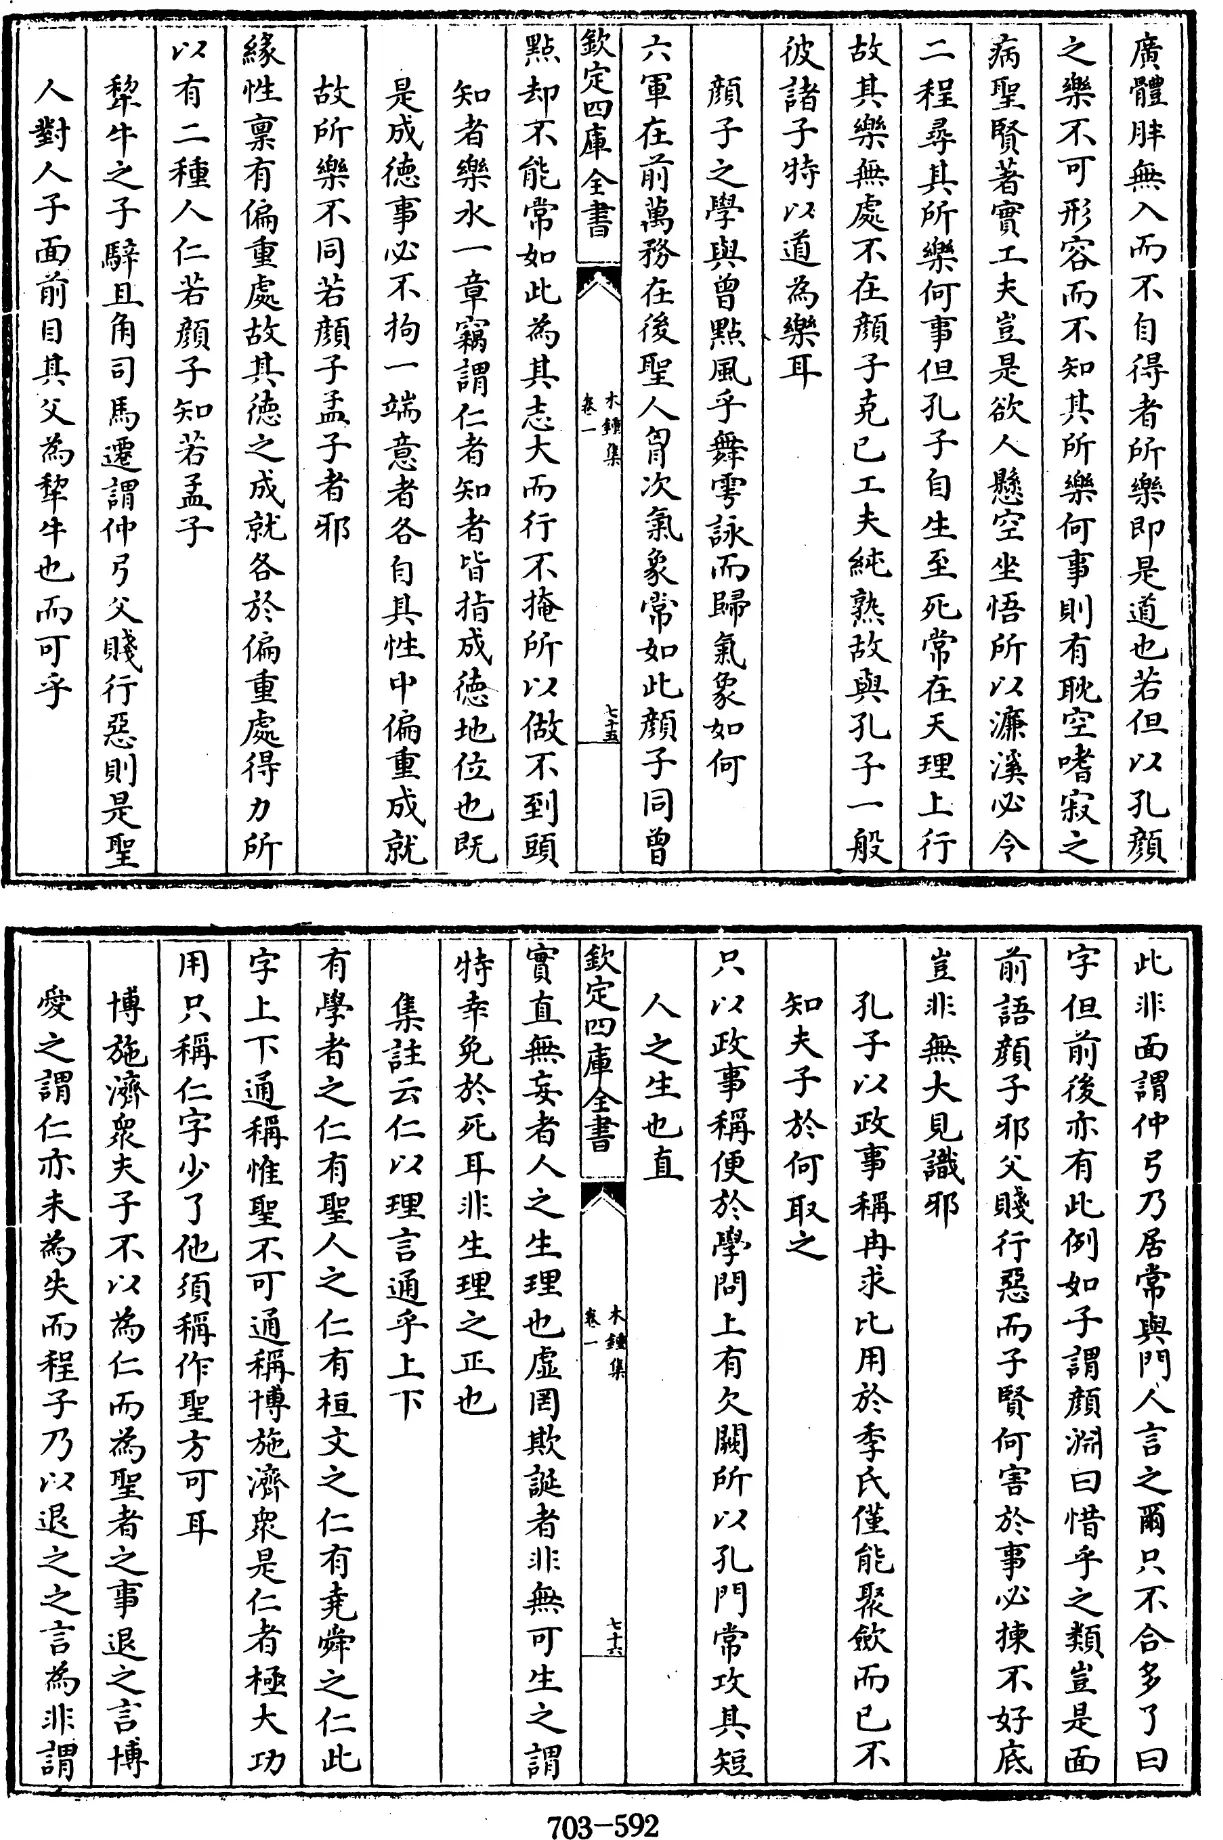 廣體胖無入而不自得者所樂即是道也若但以孔顔
之樂不可形容而不知其所樂何事則有耽空嗜寂之
病聖賢著實工夫豈是欲人懸空坐悟所以濂溪必令
二程尋其所樂何事但孔子自生至死常在天理上行
故其樂無處不在顔子克己工夫純熟故與孔子一般
彼諸子特以道為樂耳
顔子之學與曾點風乎舞雩詠而歸氣象如何
六軍在前萬務在後聖人胷次氣象常如此顔子同曾
欽定四庫全書
木鍾集
卷一
七十五
點却不能常如此為其志大而行不掩所以做不到頭
知者樂水一章竊謂仁者知者皆指成德地位也既
是成德事必不拘一端意者各自其性中偏重成就
故所樂不同若顔子孟子者邪
緣性禀有偏重處故其德之成就各於偏重處得力所
以有二種人仁若顔子知若孟子
犂牛之子騂且角司馬遷謂仲弓父賤行惡則是聖
人對人子面前目其父為犂牛也而可乎
此非面謂仲弓乃居常與門人言之爾只不合多了曰
字但前後亦有此例如子謂顔淵曰惜乎之類豈是面
前語顔子邪父賤行惡而子賢何害於事必揀不好底
豈非無大見識邪
孔子以政事稱冉求比用於季氏僅能聚斂而已不
知夫子於何取之
只以政事稱便於學問上有欠闕所以孔門常攻其短
人之生也直
欽定四庫全書
木鍾集
卷一
七十六
實直無妄者人之生理也虛罔欺誕者非無可生之謂
特幸免於死耳非生理之正也
集註云仁以理言通乎上下
有學者之仁有聖人之仁有桓文之仁有堯舜之仁此
字上下通稱惟聖不可通稱博施濟衆是仁者極大功
用只稱仁字少了他須稱作聖方可耳
博施濟衆夫子不以為仁而為聖者之事退之言博
愛之謂仁亦未為失而程子乃以退之之言為非謂
703-592